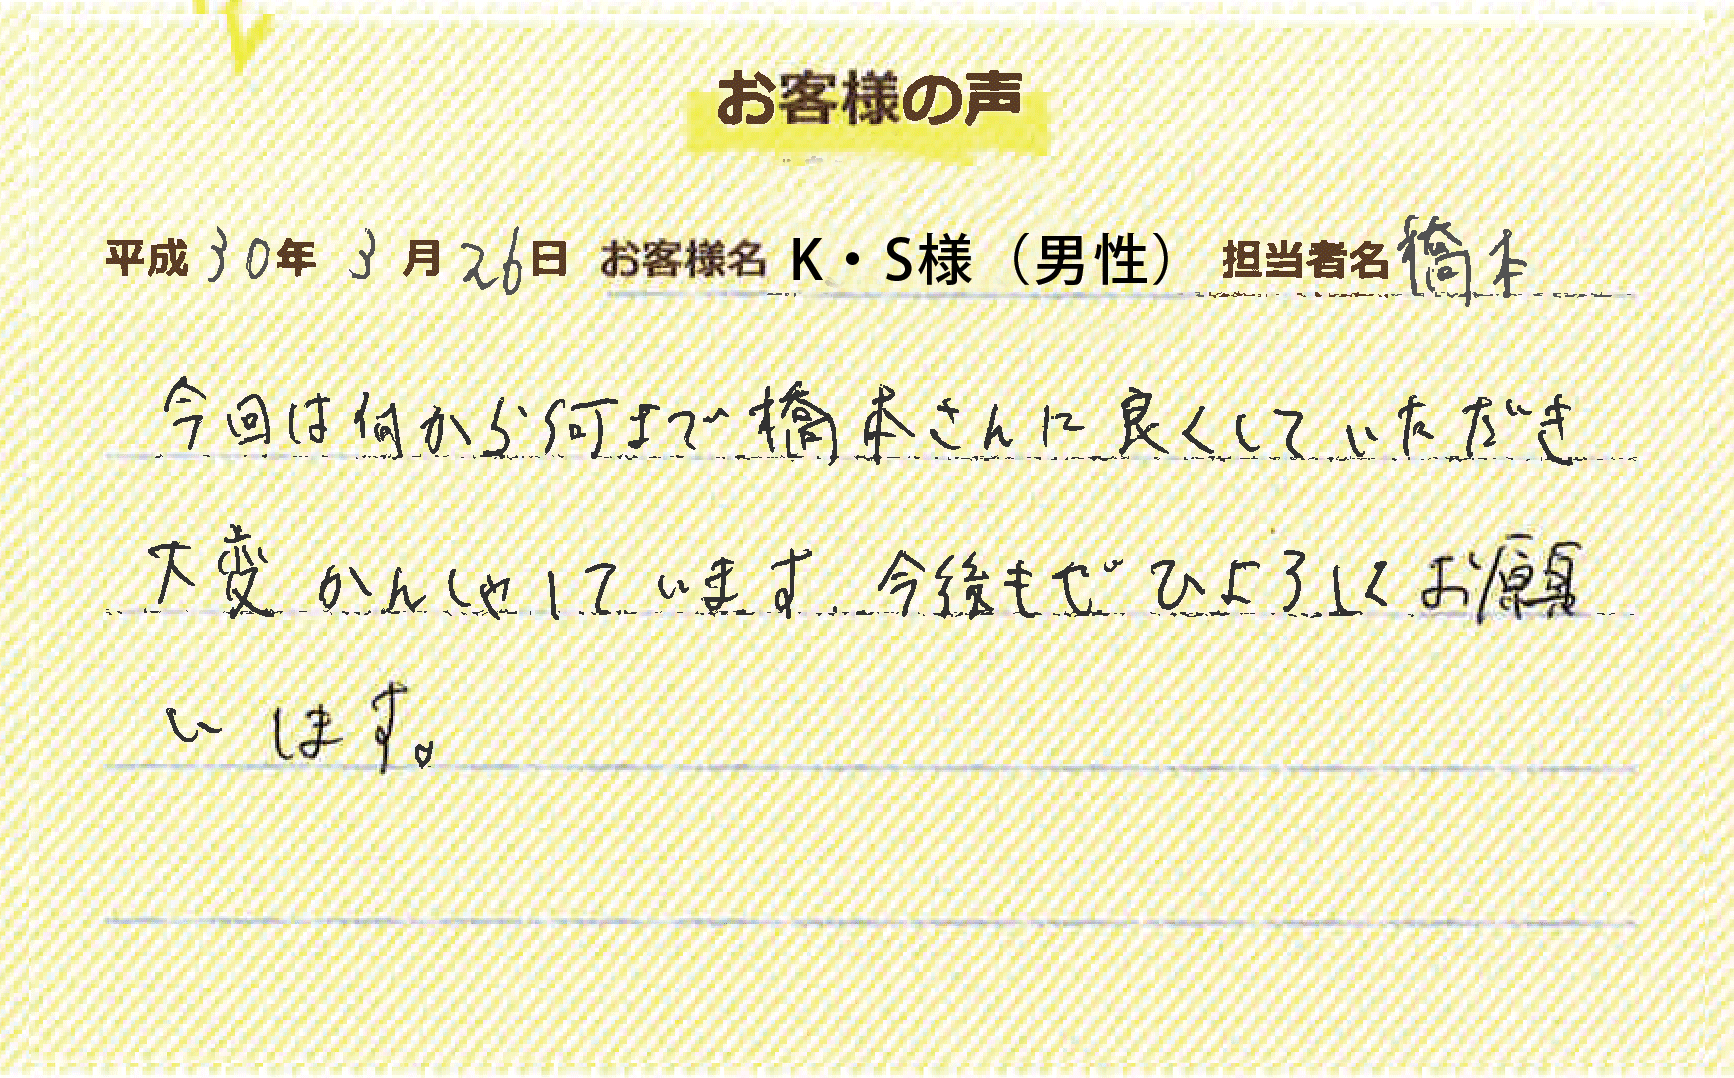 お客様の声
平成30年3月26日 お客様名 K・S様（男性） 担当者名 橋本
今回は何から何まで橋本さんに良くしていただき
大変かんしゃしています。今後もぜひよろしくお願
いします。